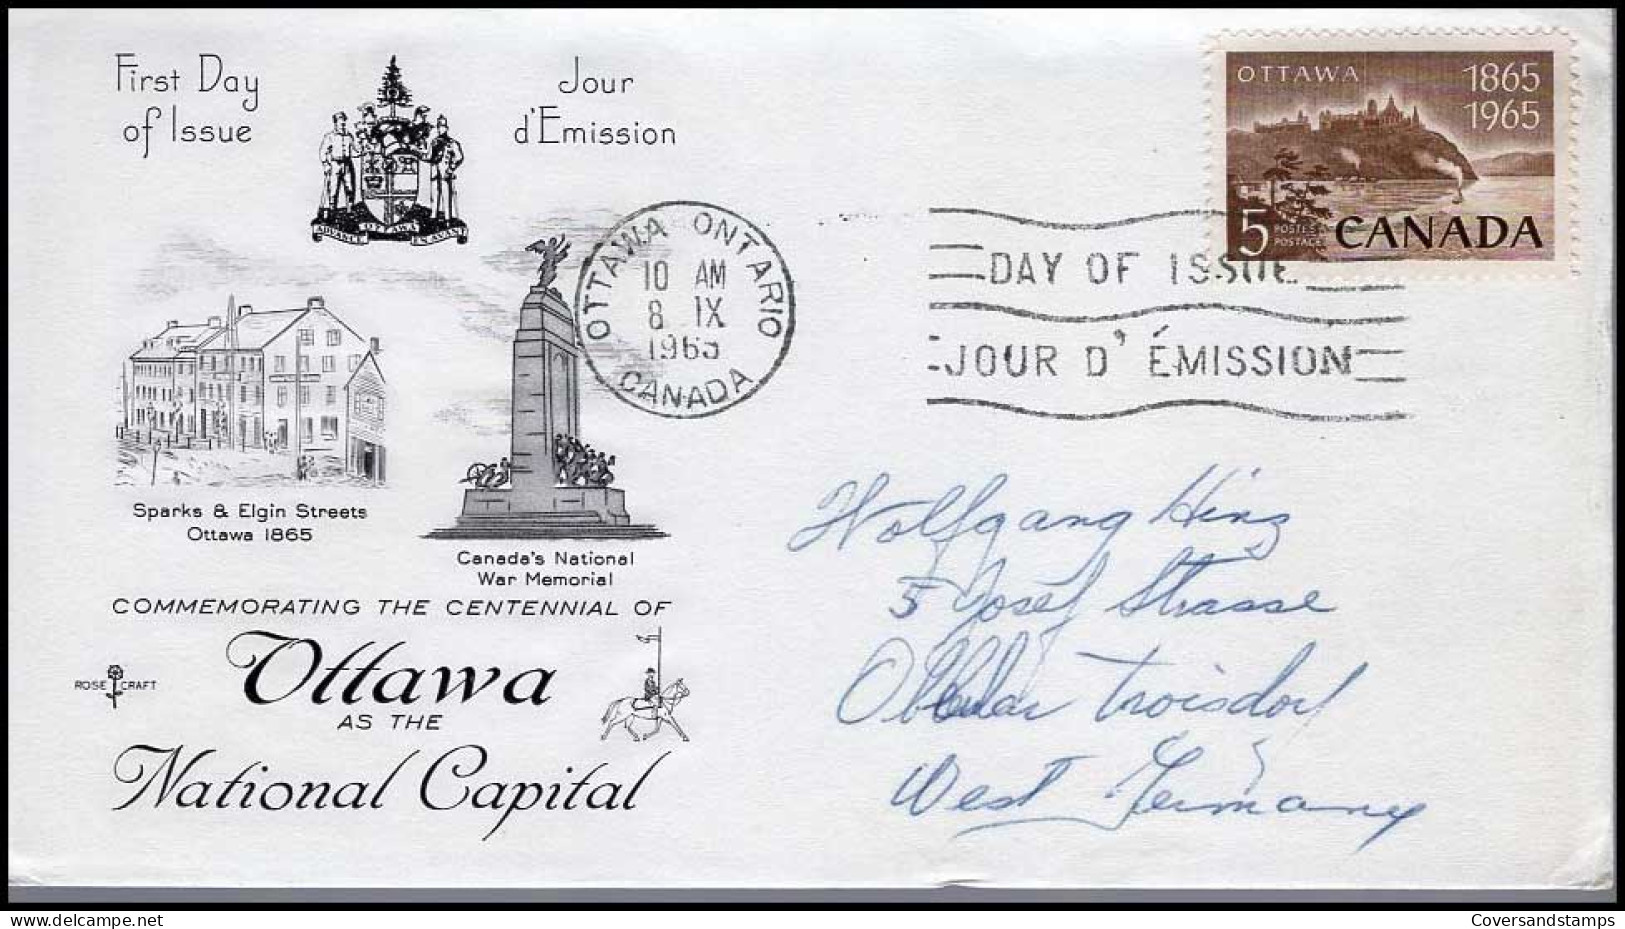 First Day
of Issue
Jour
d'Emission
ADVANCE OTTAWA EN AVANT
OTTAWA 1865
1965
5 POSTES
POSTAGE CANADA
OTTAWA ONTARIO
10 AM
8 IX
1965
CANADA
DAY OF ISSUE
JOUR D'ÉMISSION
Sparks & Elgin Streets
Ottawa 1865
Canada's National
War Memorial
COMMEMORATING THE CENTENNIAL OF
Ottawa
ROSE CRAFT
AS THE
National Capital
Wolfgang Hinz
5 Josef Strasse
Troisdorf
West Germany
www.delcampe.net
Coversandstamps